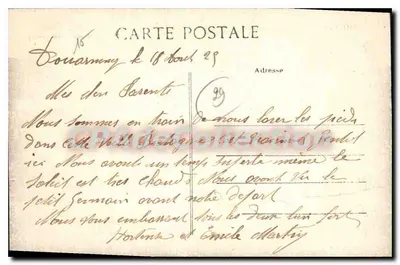 CARTE POSTALE
15
Douarnenez le 18 Aout 25
Adresse
29
Mes chers Parents
Nous sommes en train de nous laver les pieds
dans cette
ici Nous avons un temps superbe même le
soleil est très chaud Nous avons vu le
petit Germain avant notre départ
Nous vous embrassons tous les deux bien fort
Hortense et Emile Martin